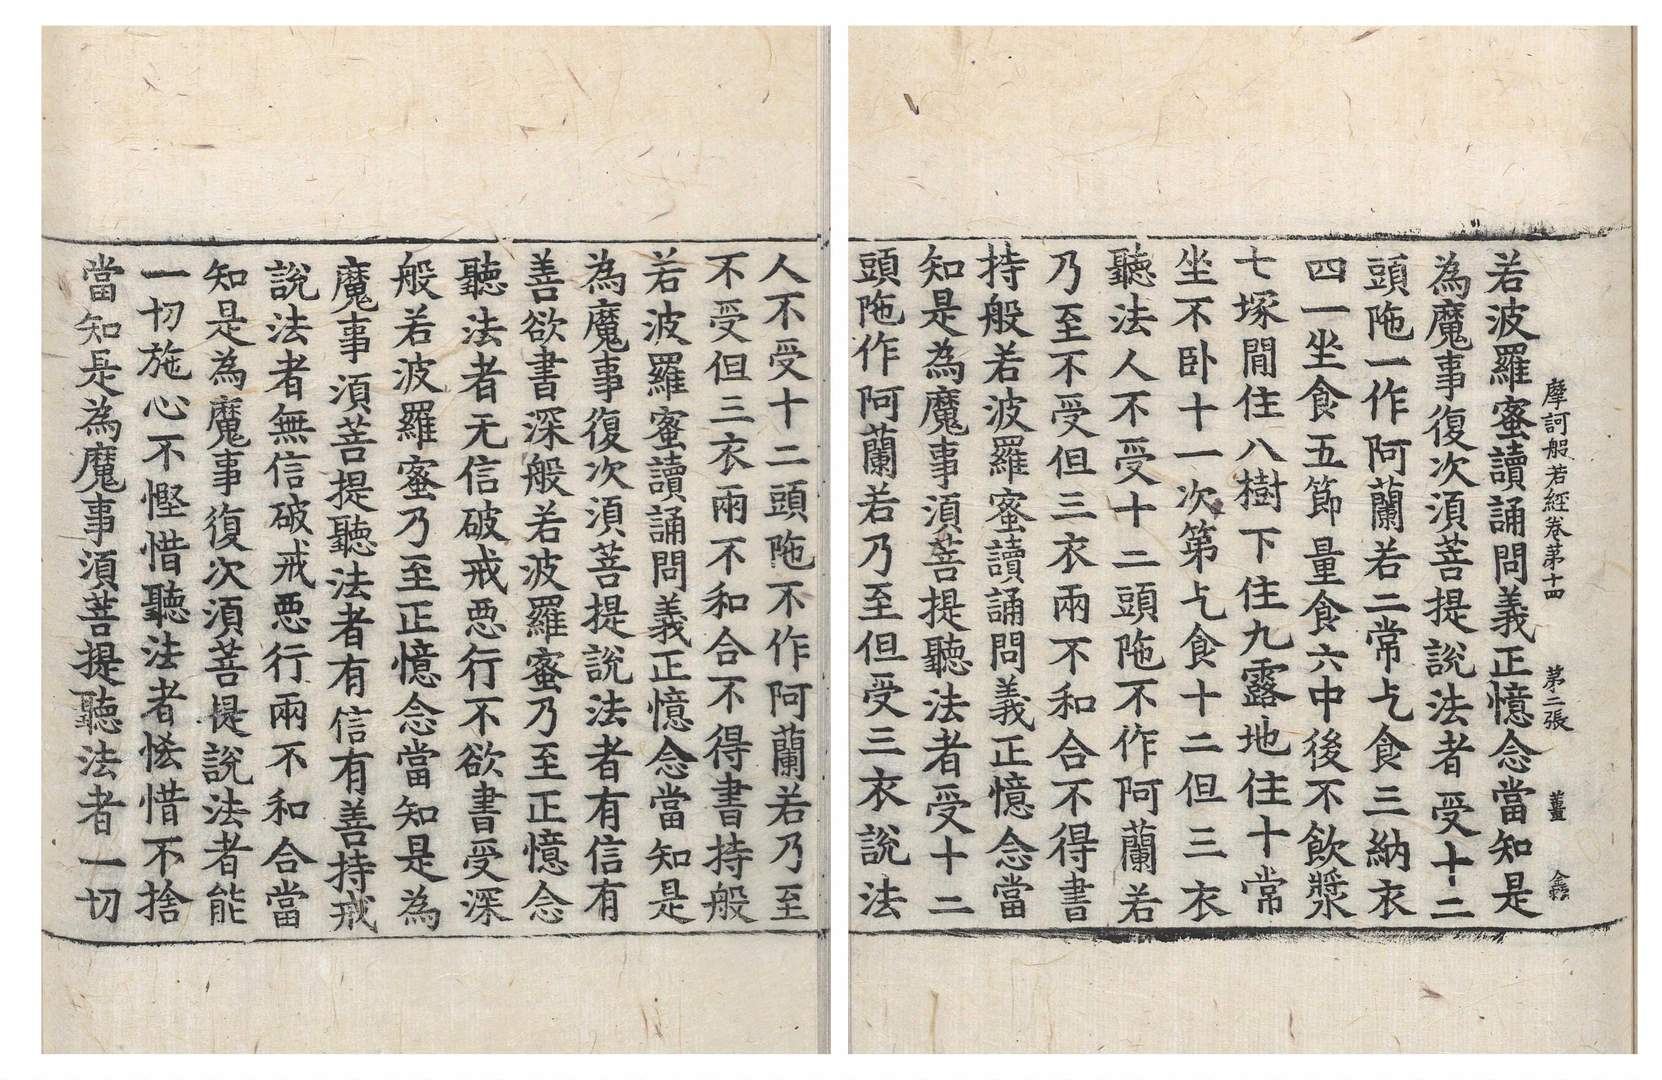 摩訶般若經卷第十四 第二張 薑
若波羅蜜讀誦問義正憶念當知是
為魔事復次須菩提說法者受十二
頭陁一作阿蘭若二常乞食三納衣
四一坐食五節量食六中後不飲漿
七塚閒住八樹下住九露地住十常
坐不卧十一次第乞食十二但三衣
聽法人不受十二頭陁不作阿蘭若
乃至不受但三衣兩不和合不得書
持般若波羅蜜讀誦問義正憶念當
知是為魔事須菩提聽法者受十二
頭陁作阿蘭若乃至但受三衣說法
人不受十二頭陁不作阿蘭若乃至
不受但三衣兩不和合不得書持般
若波羅蜜讀誦問義正憶念當知是
為魔事復次須菩提說法者有信有
善欲書深般若波羅蜜乃至正憶念
聽法者无信破戒惡行不欲書受深
般若波羅蜜乃至正憶念當知是為
魔事須菩提聽法者有信有善持戒
說法者無信破戒惡行兩不和合當
知是為魔事復次須菩提說法者能
一切施心不慳惜聽法者悋惜不捨
當知是為魔事須菩提聽法者一切